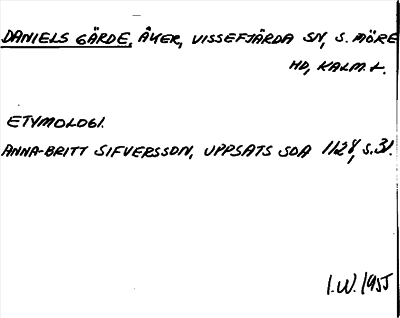 DANIELS GÄRDE, ÅKER, VISSEFJÄRDA SN, S. MÖRE
HD, KALM. L.
ETYMOLOGI.
ANNA-BRITT SIFVERSSON, UPPSATS SOA 1128, S.31.
I.W. 1955